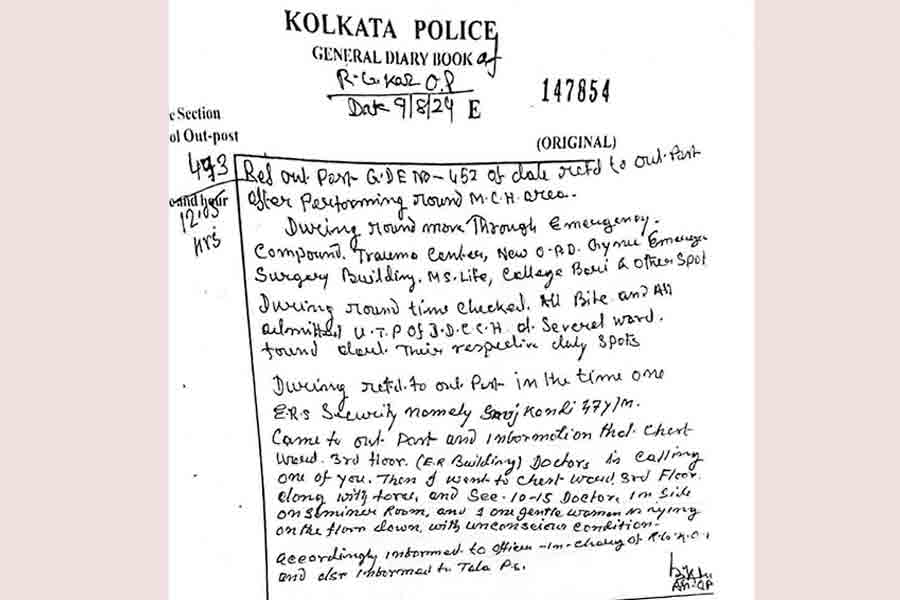 KOLKATA POLICE
GENERAL DIARY BOOK of
R.G. Kar O.P
Date 9/8/24 E
147854
c Section
ol Out-post
(ORIGINAL)
493
Ref out Post G.D.E No- 452 of date retd to out Post
after Performing round M.C.H area.
and hour
12.05
hrs
During round move Through Emergency.
Compound. Trauma Center, New O.P.D.
Surgery Building. MS. Life, College Bari & Other Spot
During round time Checked. All Bite and All
admitted U.T.P of of Several ward.
found their respective duty Spots
During retd. to out Post in the time one
E.R.S Security namely Kondi 47y/M.
Came to out Post and information that. Chest
Ward. 3rd floor. (E.R Building) Doctors is calling
one of you. Then I went to Chest Ward, 3rd Floor.
along with force, and See- 10-15 Doctors in Side
on Seminer Room, and 1 one gentle women is lying
on the floor down, with unconscious condition-
accordingly informed to officer-in-charge of
and also informed to Tala P.S.